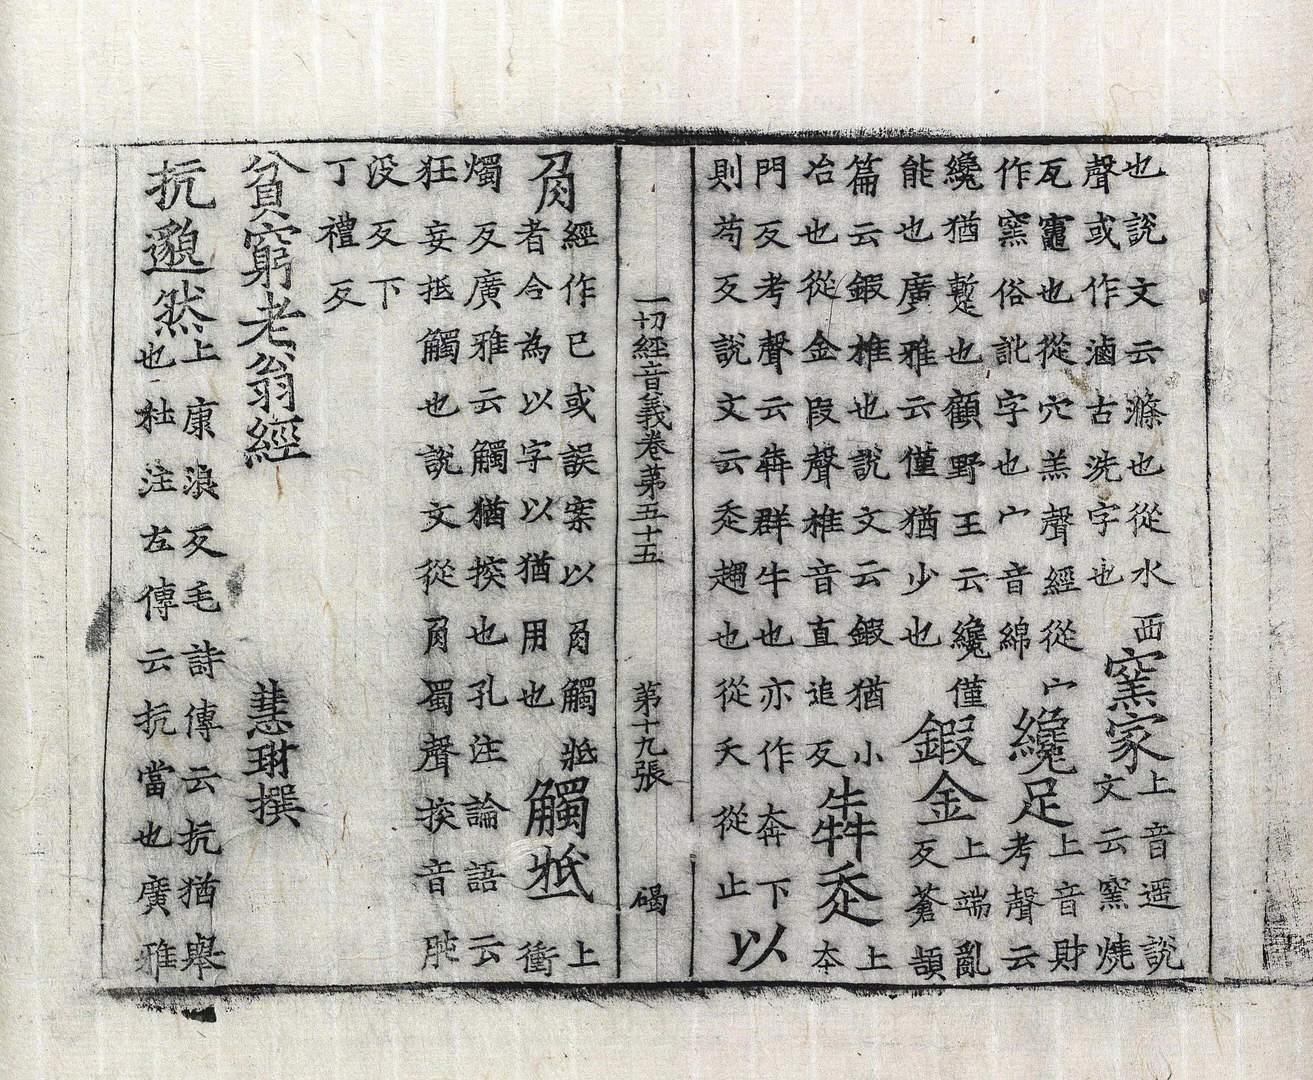 也說文云滌也從水西
聲或作滷古洗字也
窯家
上音遥說
文云窯燒
瓦竈也從穴羔聲經從宀
作窯俗訛字也宀音綿
纔足
上音財
考聲云
纔猶蹔也顧野王云纔僅
能也廣雅云僅猶少也
鍜金
上端亂
反蒼頡
篇云鍜椎也說文云鍜猶小
冶也從金段聲椎音直追反
犇走
上
本
門反考聲云犇群牛也亦作奔下
則苟反說文云走趨也從夭從止
以
一切經音義卷第五十五 第十九張 碣
角
經作已或誤案以角觸牴
者令為以字以猶用也
觸牴
上
衝
燭反廣雅云觸猶揬也孔注論語云
狂妄抵觸也說文從角蜀聲揬音肫
没反下
丁禮反
貧窮老翁經 慧琳撰
抗邈然
上康浪反毛詩傳云抗猶舉
也杜注左傳云抗當也廣雅